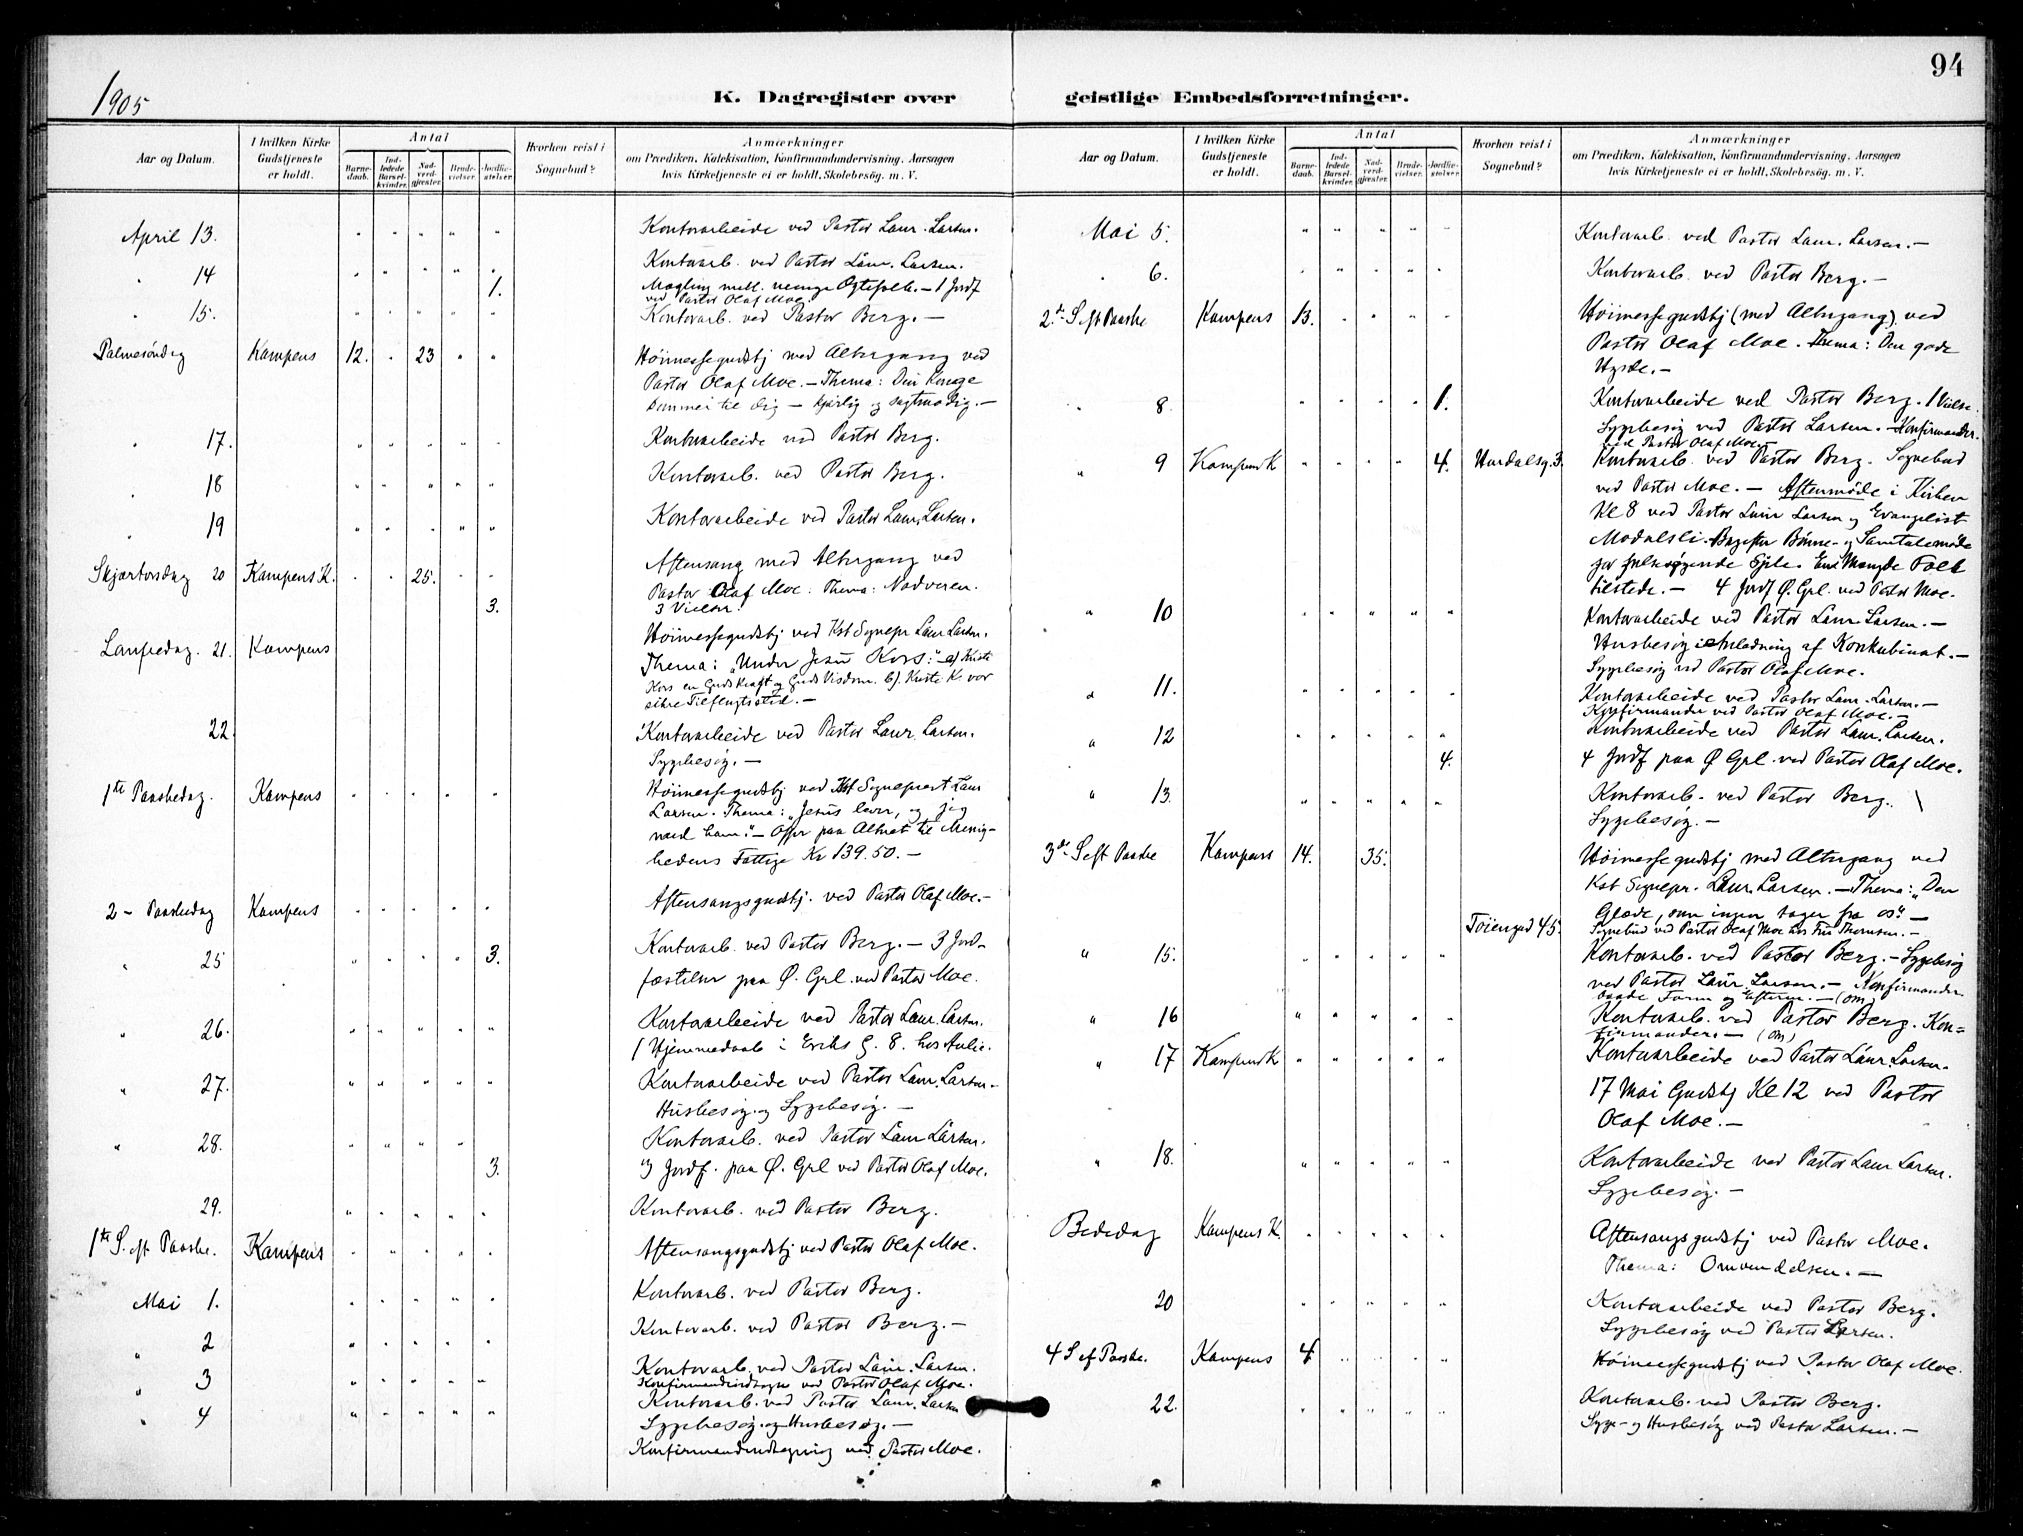 1905
94
K. Dagregister over geistlige Embedsforretninger.
Aar og Datum.
I hvilken Kirke Gudstjeneste er holdt.
Antal
Barnedaab.
Indledede Barselkvinder.
Nadverdgjæster.
Brudevielser.
Jordfæstelser.
Hvorhen reist i Sognebud?
Anmærkninger
om Prædiken, Katekisation, Konfirmandundervisning, Aarsagen
hvis Kirketjeneste ei er holdt, Skolebesög. m. V.
April 13. " " " " " Kontorarbeide ved Pastor Laur. Larsen.
" 14 " " " " Kontorarb. ved Pastor Laur. Larsen.
1. Mægling mell. uenige Ægtefolk. – 1 Jordf
ved Pastor Olaf Moe.
" 15. " " " " " Kontorarb. ved Pastor Berg. –
Palmesöndag Kampens 12. " 23 " " Höimessegudstj med Altergang ved
Pastor Olaf Moe. – Thema: Din Konge
kommer til dig – kjærlig og sagtmodig. –
" 17. " " " " " Kontorarbeide ved Pastor Berg.
" 18 " " " " " Kontorarb. ved Pastor Berg.
" 19 " " " " " Kontorarbeide ved Pastor Laur. Larsen.
Skjærtorsdag 20 Kampens K. " " 25. " " Aftensang med Altergang ved
Pastor Olaf Moe. Thema: Nadveren.
3. 3 Vielser.
Langfredag. 21. Kampens Höimessegudstj ved Kst Sognepr Laur Larsen.
Thema: "Under Jesu Kors:" a) Kristi
Kors en Guds Kraft og Guds Visdom. b). Kristi K. vor
sikre Tilflugtssted. –
22. Kontorarbeide ved Pastor Laur. Larsen.
Sygebesög. –
1te Paaskedag. Kampens " " " " " Höimessegudstj ved Kst Sogneprest Laur
Larsen. Thema: "Jesus lever, og jeg
med ham." – Offer paa Altret til Menig-
hedens Fattige Kr 139.50. –
2 – Paaskedag Kampens " " " " " Aftensangsgudstj. ved Pastor Olaf Moe. –
" 25 " " " " 3. Kontorarb. ved Pastor Berg. – 3 Jord-
fæstelser paa Ø. Grl. ved Pastor Moe.
" 26. " " " " " Kontorarbeide ved Pastor Laur. Larsen.
1 Hjemmedaab i Eriks G. 8. hos Aulie.
" 27. " " " " " Kontorarbeide ved Pastor Laur. Larsen. –
Husbesög. og Sygebesög. –
" 28. " " " " Kontorarb. ved Pastor Laur Larsen.
3. 3 Jordf. paa Ø. Grl ved Pastor Olaf Moe.
29. " " " " " Kontorarb. ved Pastor Berg.
1te S. eft Paaske. Kampens " " " " " Aftensangsgudstj ved Pastor Olaf Moe.
Mai 1. " " " " " Kontorarb. ved Pastor Berg.
" 2 " " " " " Kontorarb. ved Pastor Berg. –
" 3 " " " " " Kontorarb. ved Pastor Laur. Larsen.
ved Pastor Olaf Moe.
" 4 " " " " " Kontorarb. ved Pastor Laur. Larsen
Sygebesög. og Husbesög. –
Konfirmandindtegning ved Pastor Moe.
Aar og Datum.
I hvilken Kirke Gudstjeneste er holdt.
Antal
Barnedaab.
Indledede Barselkvinder.
Nadverdgjæster.
Brudevielser.
Jordfæstelser.
Hvorhen reist i Sognebud?
Anmærkninger
om Prædiken, Katekisation, Konfirmandundervisning, Aarsagen
hvis Kirketjeneste ei er holdt, Skolebesög. m. V.
Mai 5. " " " " " Kontorarb. ved Pastor Laur. Larsen. –
" 6. " " " " " Kontorarb. ved Pastor Berg. –
2.de S eft Paaske Kampens 13. " " " " Höimessegudstj (med Altergang) ved
Pastor Olaf Moe. Thema: Den gode
Hyrde. –
" 8. " " " " 1. Kontorarbeide ved Pastor Berg. 1 Vielse.
Sygebesög ved Pastor Larsen. – Konfirmander.
ved Pastor Olaf Moe. –
" 9 Kampens K " " " " 4. Hurdalsg. 3. Kontorarb. ved Pastor Berg. Sognebud
ved Pastor Moe. – Aftenmöde i Kirken
Kl 8 ved Pastor Laur Larsen og Evangelist
Modalsli. Bagefter Bönne- og Samtalemöde
for frelsøgende Sjele. En Mængde Folk
tilstede. – 4 Jordf Ø. Grl. ved Pastor Moe.
" 10 " " " " " Kontorarbeide ved Pastor Laur. Larsen. –
Husbesög i Anledning af Konkubinat. –
Sygebesög ved Pastor Olaf Moe.
" 11. " " " " " Kontorarbeide ved Pastor Laur. Larsen. –
Konfirmander ved Pastor Olaf Moe. –
" 12 " " " " " Kontorarbeide ved Pastor Laur. Larsen.
4. 4 Jordf paa Ø Grl. ved Pastor Olaf Moe.
" 13. " " " " Kontorarb. ved Pastor Berg.
Sygebesög. –
3de S eft Paaske Kampens 14. 35. Höimessegudstj med Altergang ved
Kst Sognepr. Laur. Larsen. – Thema: "Den
Glæde, som ingen tager fra os". –
Töiengad 45. Sognebud ved Pastor Olaf Moe hos Fru Thomsen. –
" 15. " " " " " Kontorarb. ved Pastor Berg. – Sygebesög
ved Pastor Laur. Larsen. – Konfirmander
baade Form og Efterm. – (OM)
" 16 " " " " " Kontorarb. ved Pastor Berg. Kon=
firmander. – (OM)
" 17 Kampens K " " " " " Kontorarbeide ved Pastor Laur. Larsen.
17 Mai Gudstj Kl 12 ved Pastor
Olaf Moe. –
" 18. " " " " " Kontorarbeide ved Pastor Laur Larsen.
Sygebesög. –
Bededag Kampens K. " " " " " Aftensangsgudstj ved Pastor Moe.
Thema: Omvendelsen. –
20 " " " " " Kontorarbeide ved Pastor Berg.
Sygebesög ved Pastor Larsen.
4 S ef Paaske. Kampens 4. " " " " Höimessegudstj ved Pastor Olaf Moe.
22. " " " " " Kontorarb. ved Pastor Berg.
Syge- og Husbesög ved Pastor Larsen. –